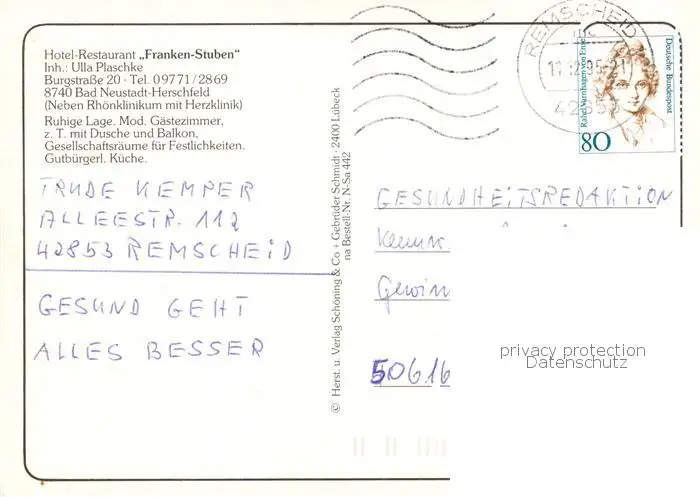 Hotel-Restaurant „Franken-Stuben“
Inh.: Ulla Plaschke
Burgstraße 20 · Tel. 09771/2869
8740 Bad Neustadt-Herschfeld
(Neben Rhönklinikum mit Herzklinik)
Ruhige Lage. Mod. Gästezimmer,
z. T. mit Dusche und Balkon,
Gesellschaftsräume für Festlichkeiten.
Gutbürgerl. Küche.
TRUDE KEMPER
ALLEESTR. 112
42853 REMSCHEID
GESUND GEHT
ALLES BESSER
© Herst. u. Verlag Schöning & Co + Gebrüder Schmidt · 2400 Lübeck
na Bestell-Nr. N-Sa 442
REMSCHEID
Rahel Varnhagen von Ense
Deutsche Bundespost
80
GESUNDHEITSREDAKTION
Gewin
50616
privacy protection
Datenschutz